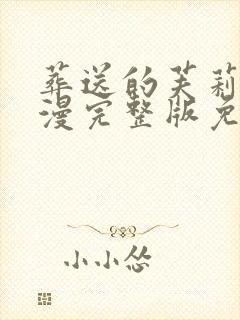 葬送的芙莉
漫完整版免
小小怂